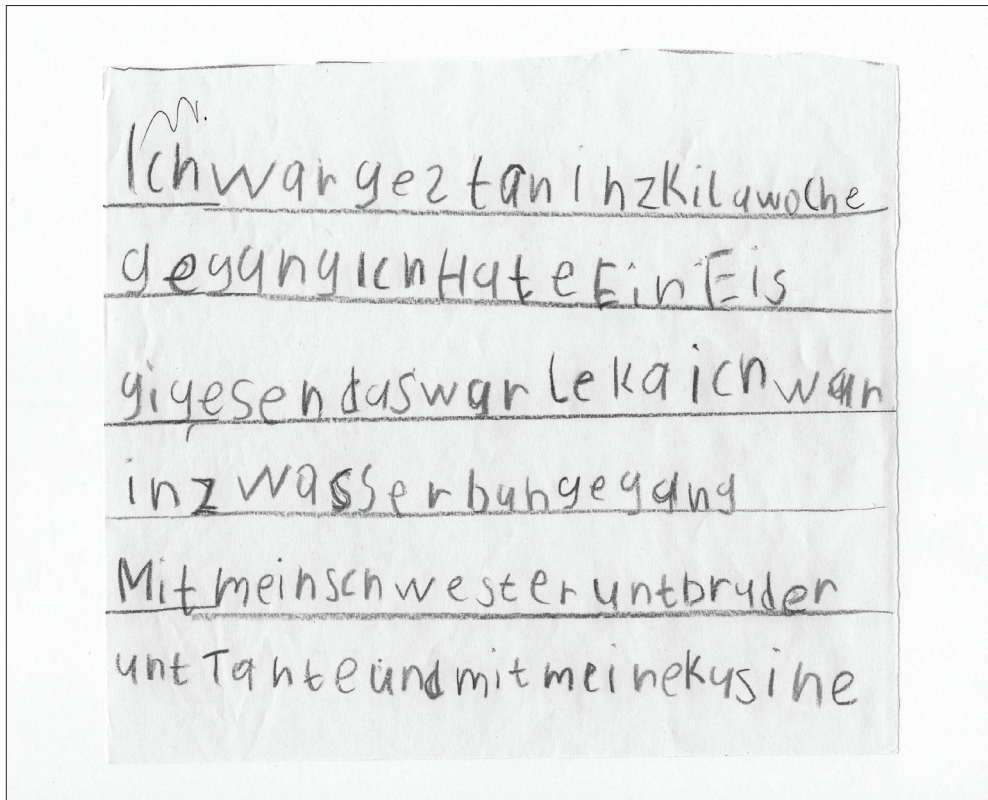 Ich war geztan Inz Kilawoche
gegang Ich Hate Ein Eis
gigesen das war leka ich war
inz wasserbahn gegang
Mit mein schwester unt bruder
unt Tante und mit meine Kusine